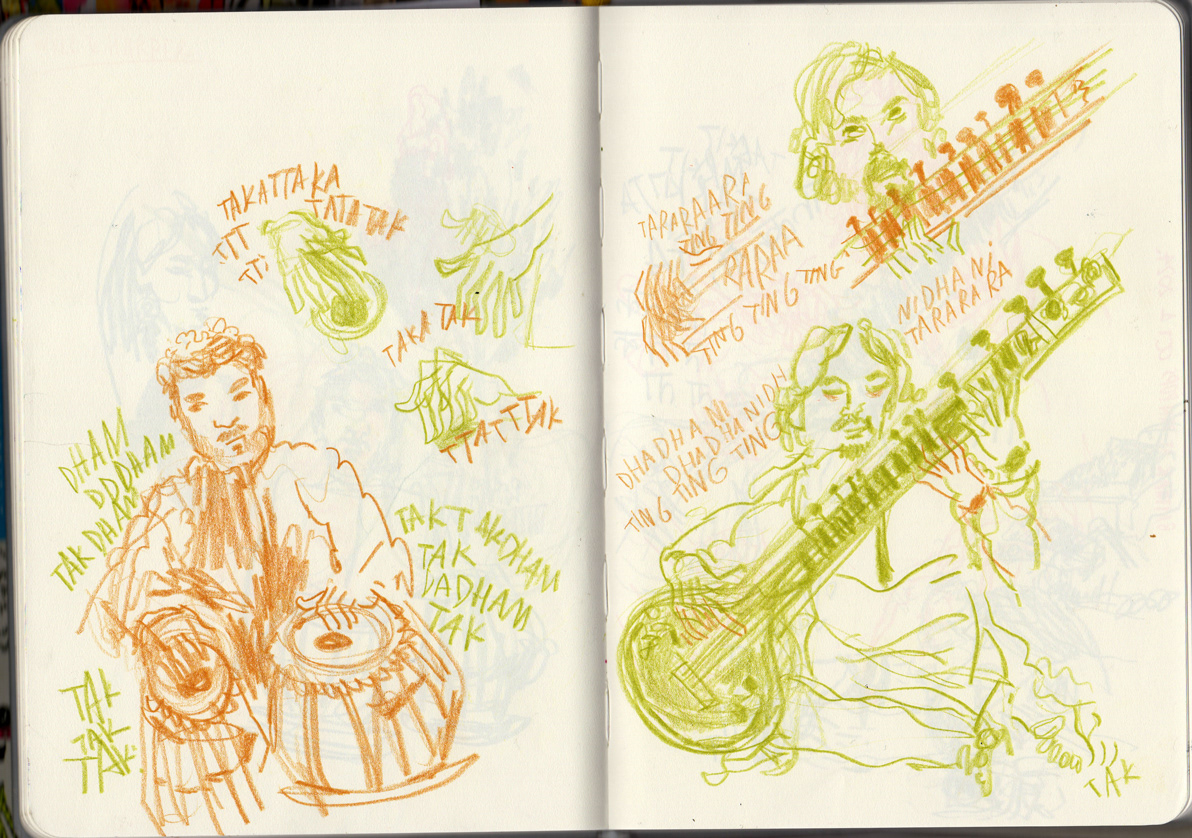 TAKATTAKA
TATATAK
TTT
TTi
TAKA TAK
TATTTAK
DHAM
DDDHAAM
TAK DHAM
TAKT AKDHAM
TAK
DADHAM
TAK
TAK
TAK
TAK
TARARAARA
TING TING
RARAA
TING TING TING
NIDHA Ni
TARARARA
DHADHA NI
DHADHANIDH
TING TING TING
TAK